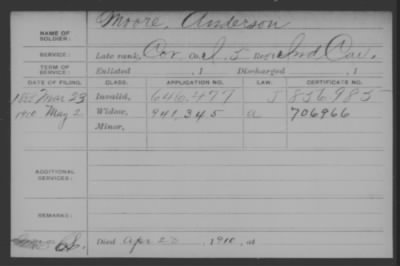 NAME OF SOLDIER: Moore, Anderson
SERVICE: Late rank, Cor Co. I, 5 Reg't Ind Cav.
TERM OF SERVICE: Enlisted , 1 Discharged , 1
DATE OF FILING. CLASS. APPLICATION NO. LAW. CERTIFICATE NO.
Mar 23 Invalid, 646,477 J 856985
1910 May 2 Widow, 941,345 a 706966
Minor,
ADDITIONAL SERVICES:
REMARKS:
Died Apr , 1910, at